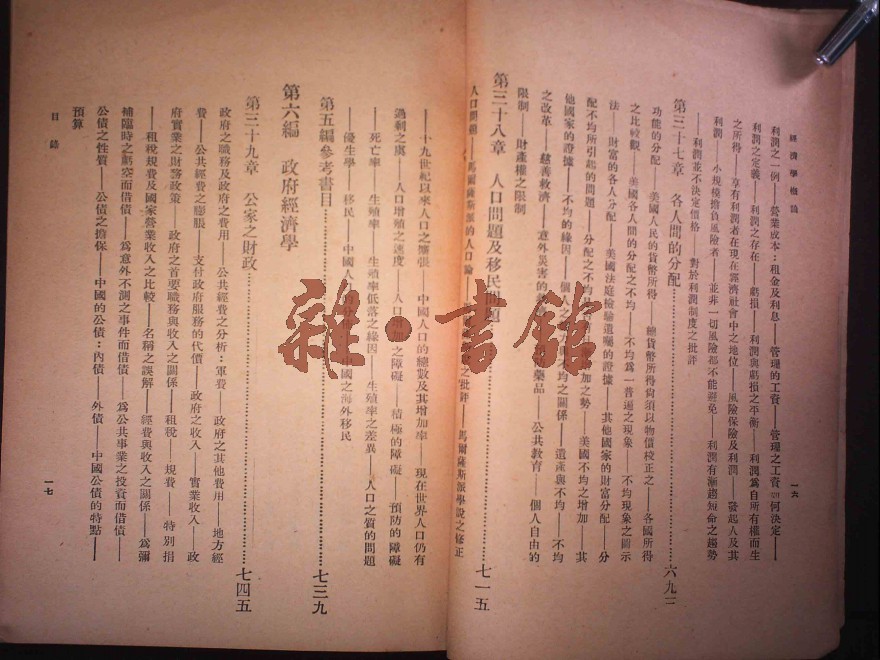 經濟學概論
一六
利潤之一例——營業成本：租金及利息——管理的工資——管理之工資如何決定——
利潤之定義——利潤之存在——虧損——利潤與虧損之平衡——利潤爲自所有權而生
之所得——享有利潤者在現在經濟社會中之地位——風險保險及利潤——發起人及其
利潤——小規模擔負風險者——並非一切風險都不能避免——利潤有漸趨短命之趨勢
——利潤並不決定價格——對於利潤制度之批評
第三十七章 各人間的分配……六九三
功能的分配——美國人民的貨幣所得——總貨幣所得尙須以物價校正之——各國所得
之比較觀——美國各人間的分配之不均——不均爲一普通之現象——不均現象之圖示
法——財富的各人分配——美國法庭檢驗遺囑的證據——其他國家的財富分配——分
配不均所引起的問題——分配之不均 加之勢——美國不均之增加——其
他國家的證據——不均的緣因——個人之 力與不均之關係——遺產與不均——不均
之改革——慈善救濟——意外災害的 藥品——公共教育——個人自由的
限制——財產權之限制
第三十八章 人口問題及移民問題……七一五
人口問題——馬爾薩斯派的人口論—— 之批評——馬爾薩斯派學說之修正
——十九世紀以來人口之擴張——中國人口的總數及其增加率——現在世界人口仍有
過剩之虞——人口增殖之速度——人口增加之障礙——積極的障礙——預防的障礙
——死亡率——生殖率——生殖率低落之緣因——生殖率之差異——人口之質的問題
——優生學——移民——中國人 中國之海外移民
第五編參考書目……七三九
第六編 政府經濟學
第三十九章 公家之財政……七四五
政府之職務及政府之費用——公共經費之分析：軍費——政府之其他費用——地方經
費——公共經費之膨脹——支付政府服務的代價——政府之收入——實業收入——政
府實業之財務政策——政府之首要職務與收入之關係——租稅——規費——特別捐
——租稅規費及國家營業收入之比較——名稱之誤解——經費與收入之關係——爲彌
補臨時之虧空而借債——爲意外不測之事件而借債——爲公共事業之投資而借債——
公債之性質——公債之擔保——中國的公債：內債——外債——中國公債的特點——
預算
目錄
一七
雜·書館